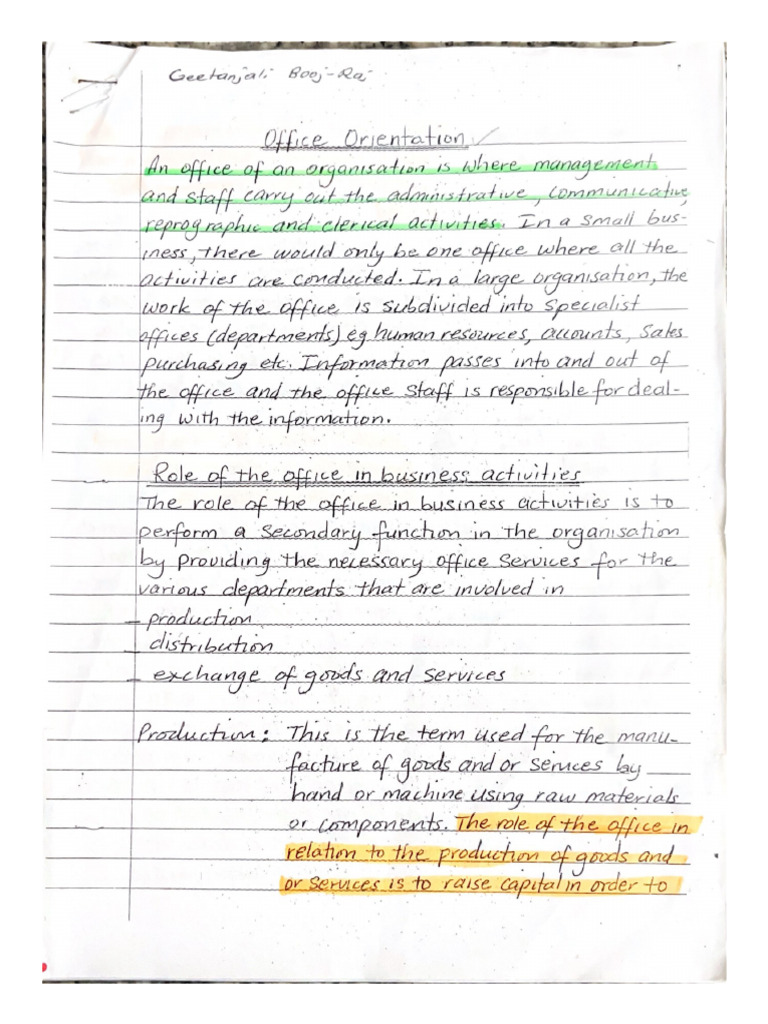 Geetanjali Booj-Raj
Office Orientation
An office of an organisation is where management
and staff carry out the administrative, communicative,
reprographic and clerical activities. In a small bus-
iness, there would only be one office where all the
activities are conducted. In a large organisation, the
work of the office is subdivided into specialist
offices (departments) eg human resources, accounts, sales
purchasing etc. Information passes into and out of
the office and the office staff is responsible for deal-
ing with the information.
Role of the office in business activities
The role of the office in business activities is to
perform a secondary function in the organisation
by providing the necessary office services for the
various departments that are involved in
- production
- distribution
- exchange of goods and services
Production: This is the term used for the manu-
facture of goods and or services by
hand or machine using raw materials
or components. The role of the office in
relation to the production of goods and
or services is to raise capital in order to